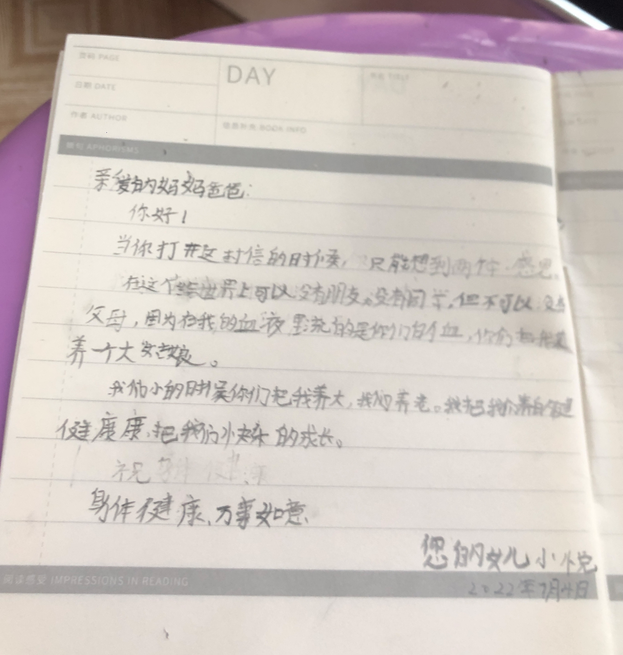 书码 PAGE
DAY
日期 DATE
作者 AUTHOR
信息补充 BOOK INFO
摘句 APHORISMS
亲爱的妈妈爸爸：
你好！
当你打开这封信的时候，只能想到两件感恩
在这个世界上可以没有朋友。没有同学，但不可以没有
父母，因为在我的血液里流的是你们的血，你们
养一大
我们小的时候是你们把我养大，我们养老。
健康康，把我们小快乐的成长。
祝身体健康
身体健康，万事如意
您的女儿小悦
阅读感受 IMPRESSIONS IN READING
2022年7月4日